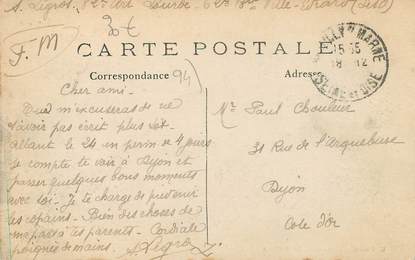 A. Legros, 1er Art Lourde
30f
F.M
CARTE POSTALE
Correspondance
94
Adresse
SEINE ET OISE
15 15
18 12
Cher ami -
Tu m'excuseras de ne
t'avoir pas écrit plus tôt -
allant le 24 en perm de 4 jours
je compte te voir à Dijon et
passer quelques bons moments
avec toi. Je te charge de prévenir
les copains - Bien des choses de
ma part à tes parents - Cordiale
poignée de mains. A. Legros
Mr Paul Chouleur
31 Rue de l'arquebuse
Dijon
Cote d'or